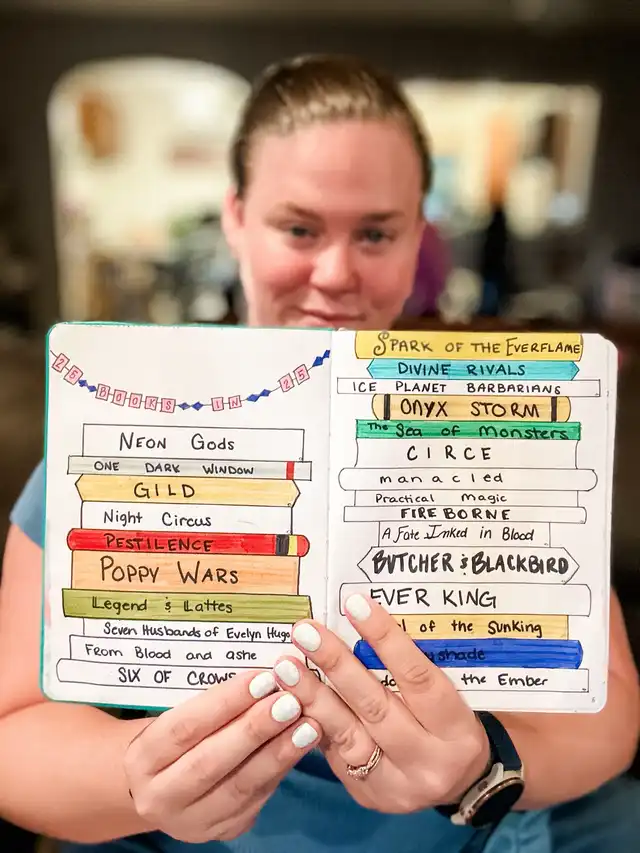 25 BOOKS IN 25
NEON GODS
ONE DARK WINDOW
GILD
Night Circus
PESTILENCE
POPPY WARS
Legend & Lattes
Seven Husbands of Evelyn Hugo
From Blood and ashe
SIX OF CROWS
SPARK OF THE EVERFLAME
DIVINE RIVALS
ICE PLANET BARBARIANS
ONYX STORM
The Sea of Monsters
CIRCE
manacled
Practical magic
FIREBORNE
A Fate Inked in Blood
BUTCHER & BLACKBIRD
EVER KING
of the Sunking
the Ember